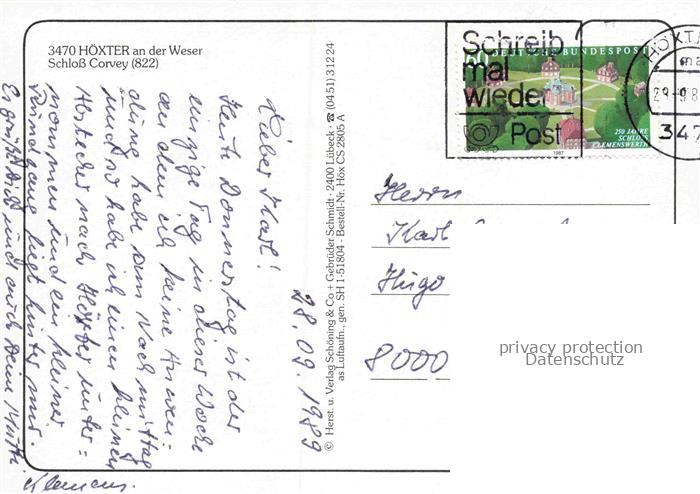 3470 HÖXTER an der Weser
Schloß Corvey (822)
Schreib
mal
wieder
Post
60
DEUTSCHE BUNDESPOST
250 JAHRE
SCHLOSS
CLEMENSWERTH
1987
HÖXT
29.-9.8
347
© Herst. u. Verlag Schöning & Co + Gebrüder Schmidt · 2400 Lübeck · ☎ (0451) 31224
as Luftaufn., gen. SH 1-51804 - Bestell-Nr. Höx CS 2805 A
28.09.1989
Lieber Karl!
Heute Donnerstag ist der
einzige Tag in dieser Woche
an dem ich keine Anwen-
dung habe am Nachmittag
und so habe ich einen kleinen
nach Höxter unter-
nommen und ein kleiner
Rundgang liegt hinter mir.
Es grüßt Dich und auch Deine
Klemens.
Herrn
Karl
Hugo
8000
privacy protection
Datenschutz